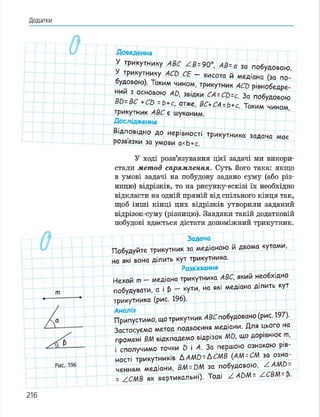 Додатки
Доведення
У трикутнику ABC ∠B=90°, AB=a за побудовою.
У трикутнику ACD CE — висота й медіана (за по-
будовою). Таким чином, трикутник ACD рівнобедре-
ний з основою AD, звідки CA=CD=c. За побудовою
BD=BC +CD =b+c, отже, BC+CA=b+c. Таким чином,
трикутник ABC є шуканим.
Дослідження
Відповідно до нерівності трикутника задача має
розв'язки за умови a<b+c.
У ході розв'язування цієї задачі ми викори-
стали метод спрямлення. Суть його така: якщо
в умові задачі на побудову задано суму (або різ-
ницю) відрізків, то на рисунку-ескізі їх необхідно
відкласти на одній прямій від спільного кінця так,
щоб інші кінці цих відрізків утворили заданий
відрізок-суму (різницю). Завдяки такій додатковій
побудові вдається дістати допоміжний трикутник.
Задача
Побудуйте трикутник за медіаною й двома кутами,
на які вона ділить кут трикутника.
Розв'язання
Нехай m — медіана трикутника ABC, який необхідно
побудувати, α і β — кути, на які медіана ділить кут
трикутника (рис. 196).
Аналіз
Припустимо, що трикутник ABC побудовано (рис. 197).
Застосуємо метод подвоєння медіани. Для цього на
промені BM відкладемо відрізок MD, що дорівнює m,
і сполучимо точки D і A. За першою ознакою рів-
ності трикутників ΔAMD=ΔCMB (AM=CM за озна-
ченням медіани, BM=DM за побудовою, ∠AMD=
= ∠CMB як вертикальні). Тоді ∠ADM= ∠CBM=β.
m
α
β
Рис. 196
216